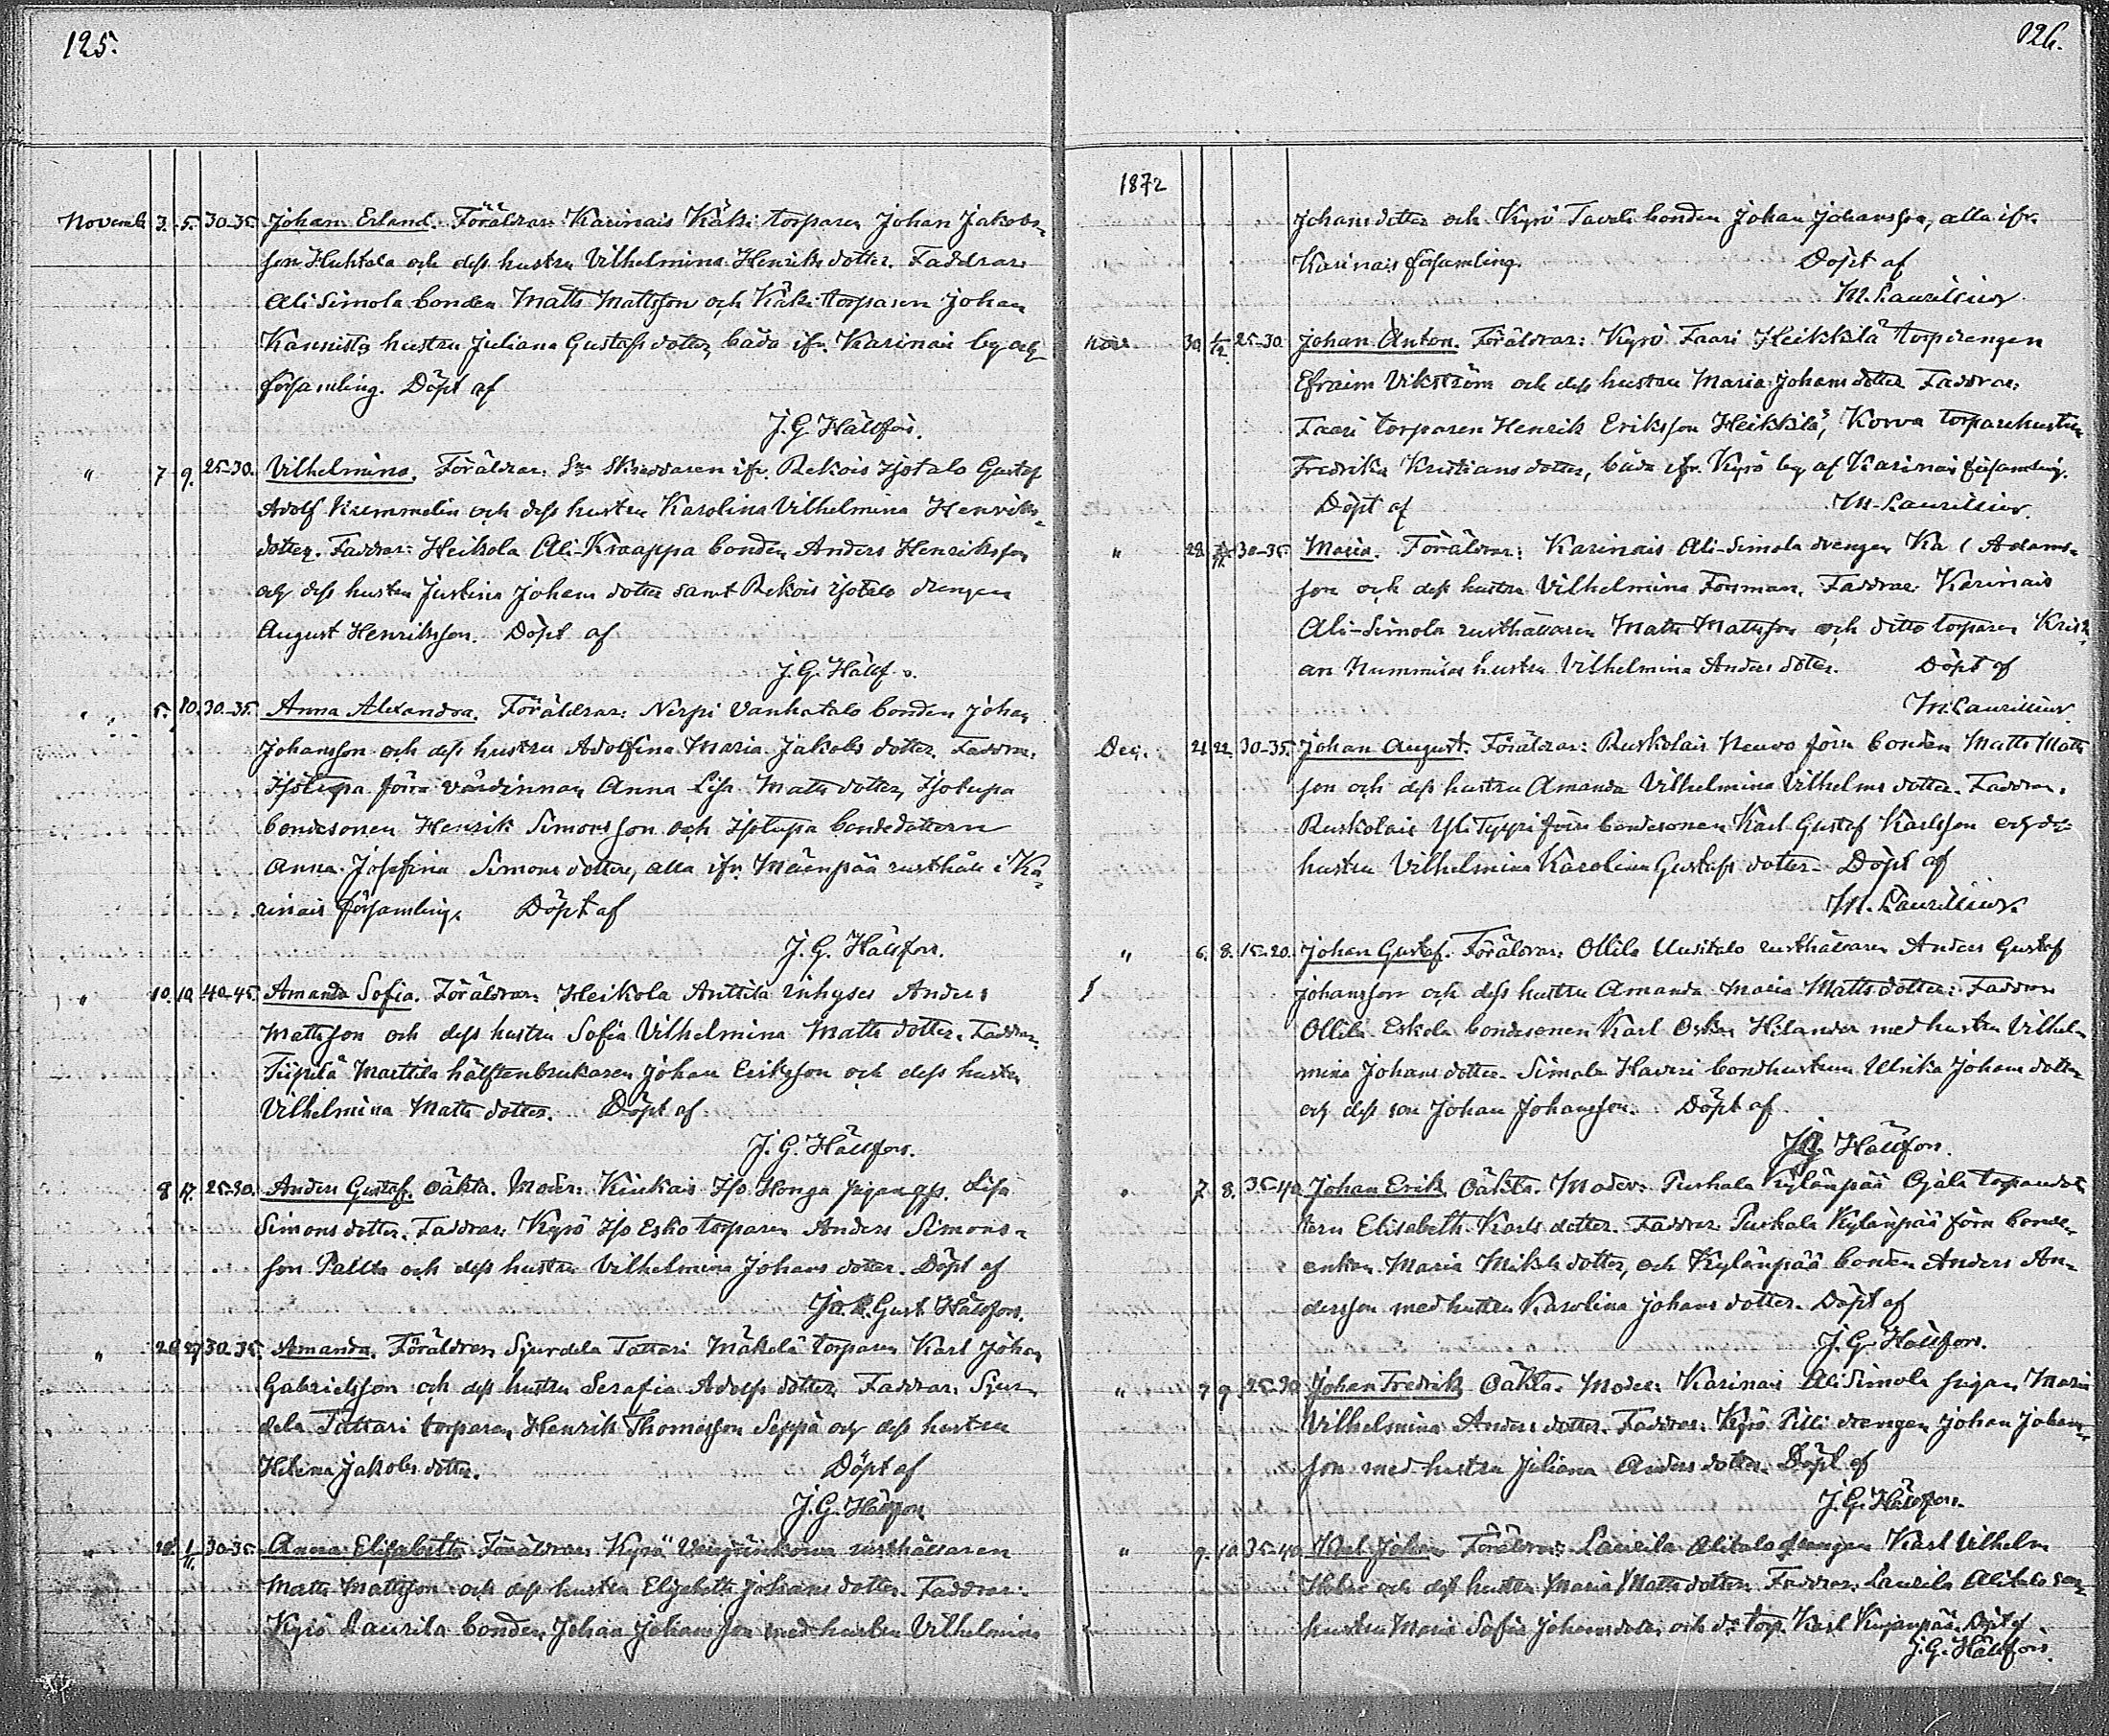 125.
November 3. 5. 30-35. Johan Erland. Föräldrar: Karinais Käki torparen Johan Jakobs-
son Huhtala och dess hustru Vilhelmina Henriks dotter. Faddrar:
Ali Simola bonden Matts Mattsson och Käki torparen Johan
Kannisto hustru Juliana Gustafs dotter, båda ifr. Karinais by och
församling. Döpt af
J. G. Hällfors.
" 7 9. 25-30. Vilhelmina. Föräldrar: Skreddaren ifr. Rekois Isotalo Gustaf
Adolf och dess hustru Karolina Vilhelmina Henriks-
dotter. Faddrar: Heikola Ali-Kraappa bonden Anders Henriksson
och dess hustru Justina Johans dotter samt Rekois Isotalo drengen
August Henriksson. Döpt af
J. G. Hällf
" 5. 10. 30-35. Anna Alexandra. Föräldrar: Nerpi Vanhatalo bonden Johan
Johansson och dess hustru Adolfina Maria Jakobs dotter. Faddrar:
Isotupa förra värdinnan Anna Lisa Matts dotter, Isotupa
bondesonen Henrik Simonsson och Isotupa bondedottern
Anna Josefina Simons dotter, alla ifr. Mäenpää rusthåll i Ka-
rinais församling. Döpt af
J. G. Hällfors.
" 10. 10. 40-45. Amanda Sofia. Föräldrar: Heikola Anttila inhyses Anders
Mattsson och dess hustru Sofia Vilhelmina Matts dotter. Faddrar:
Tiipilä Marttila hälftenbrukaren Johan Eriksson och dess hustru
Vilhelmina Matts dotter. Döpt af
J. G. Hällfors.
8 17. 25-30. Anders Gustaf. Oäkta. Moder: Kinkais Iso Honga pigan Lisa
Simons dotter. Faddrar: Kyrö Iso Esko torparen Anders Simons-
son Pallta och dess hustru Vilhelmina Johans dotter. Döpt af
Jak. Gust. Hällfors.
" 26 27 30-35. Amanda. Föräldrar: Sjurdela Tattari Mäkelä torparen Karl Johan
Gabrielsson och dess hustru Serafia Adolfs dotter. Faddrar: Sjur-
dela Tattari torparen Henrik Thomasson Seppä och dess hustru
Helena Jakobs dotter. Döpt af
J. G. Hällfors
" 30-35 Anna Elisabeth Föräldrar: Kyrö rusthållaren
Matts Mattsson och dess hustru Elisabeth Johans dotter. Faddrar:
Kyrö Laurila bonden Johan Johansson med hustru Vilhelmina
126.
1872
Johansdotter och Kyrö Tavela bonden Johan Johansson, alla ifr.
Karinais församling. Döpt af
M. Laurilius
Nov. 30. 1/12. 25-30. Johan Anton. Föräldrar: Kyrö Faari Heikkilä torpdrengen
Efraim Vikström och dess hustru Maria Johans dotter Faddrar:
Faari torparen Henrik Eriksson Heikkilä, Korva torparehustru
Fredrika Kristians dotter, båda ifr. Kyrö by af Karinais församling.
Döpt af M. Laurilius.
" 28. 30-35 Maria. Föräldrar: Karinais Ali-Simola drengen Adams-
son och dess hustru Vilhelmina Forsman. Faddrar: Karinais
Ali-Simola rusthållaren Matts Mattsson och ditto torparen Kristi-
an Nummilas hustru Vilhelmina Anders dotter. Döpt af
M. Laurilius
Dec. 21. 22. 30-35. Johan August. Föräldrar: Ruskolais Neuvo förra bonden Matts Matts
son och dess hustru Amanda Vilhelmina Vilhelms dotter. Faddrar:
Ruskolais Yli Typpi förra bondesonen Karl Gustaf Karlsson och d:o
hustru Vilhelmina Karolina Gustafs dotter. Döpt af
M. Laurilius.
" 6. 8. 15-20. Johan Gustaf. Föräldrar: Ollila Uusitalo rusthållaren Anders Gustaf
Johansson och dess hustru Amanda Maria Matts dotter. Faddrar
Ollila Eskola bondesonen Karl Oskar Hilander med hustru Vilhel-
mina Johans dotter. Simala Haveri bondhustrun Ulrika Johans dotter
och dess son Johan Johansson. Döpt af
J. G. Hällfors.
" 7. 8. 35-40 Johan Erik. Oäkta. Moder: Puskala Kylänpää Ojala torparedot-
tern Elisabeth Karls dotter. Faddrar Puskala Kylänpää förra bonde-
enkan Maria Mikels dotter, och Kylänpää bonden Anders An-
dersson med hustru Karolina Johans dotter. Döpt af
J. G. Hällfors.
" 7 9. 25-30 Johan Fredrik. Oäkta. Moder: Karinais Ali Simola pigan Maria
Vilhelmina Anders dotter. Faddrar: Kyrö Pilli drengen Johan Johans-
son med hustru Juliana Anders dotter. Döpt af
J. G. Hällfors.
" 9. 10 35-40 Karl Johan Föräldrar: Laurila Alitalo drengen Karl Vilhelm
och dess hustru Maria Matts dotter. Faddrar: Laurila Alitalo
hustru Maria Sofia Johansdotter och d:o torp. Karl Kujanpää. Döpt af
J. G. Hällfors.